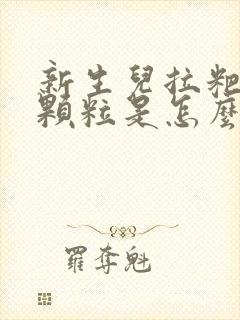 新生兒拉粑
顆粒是怎麼
羅奪魁